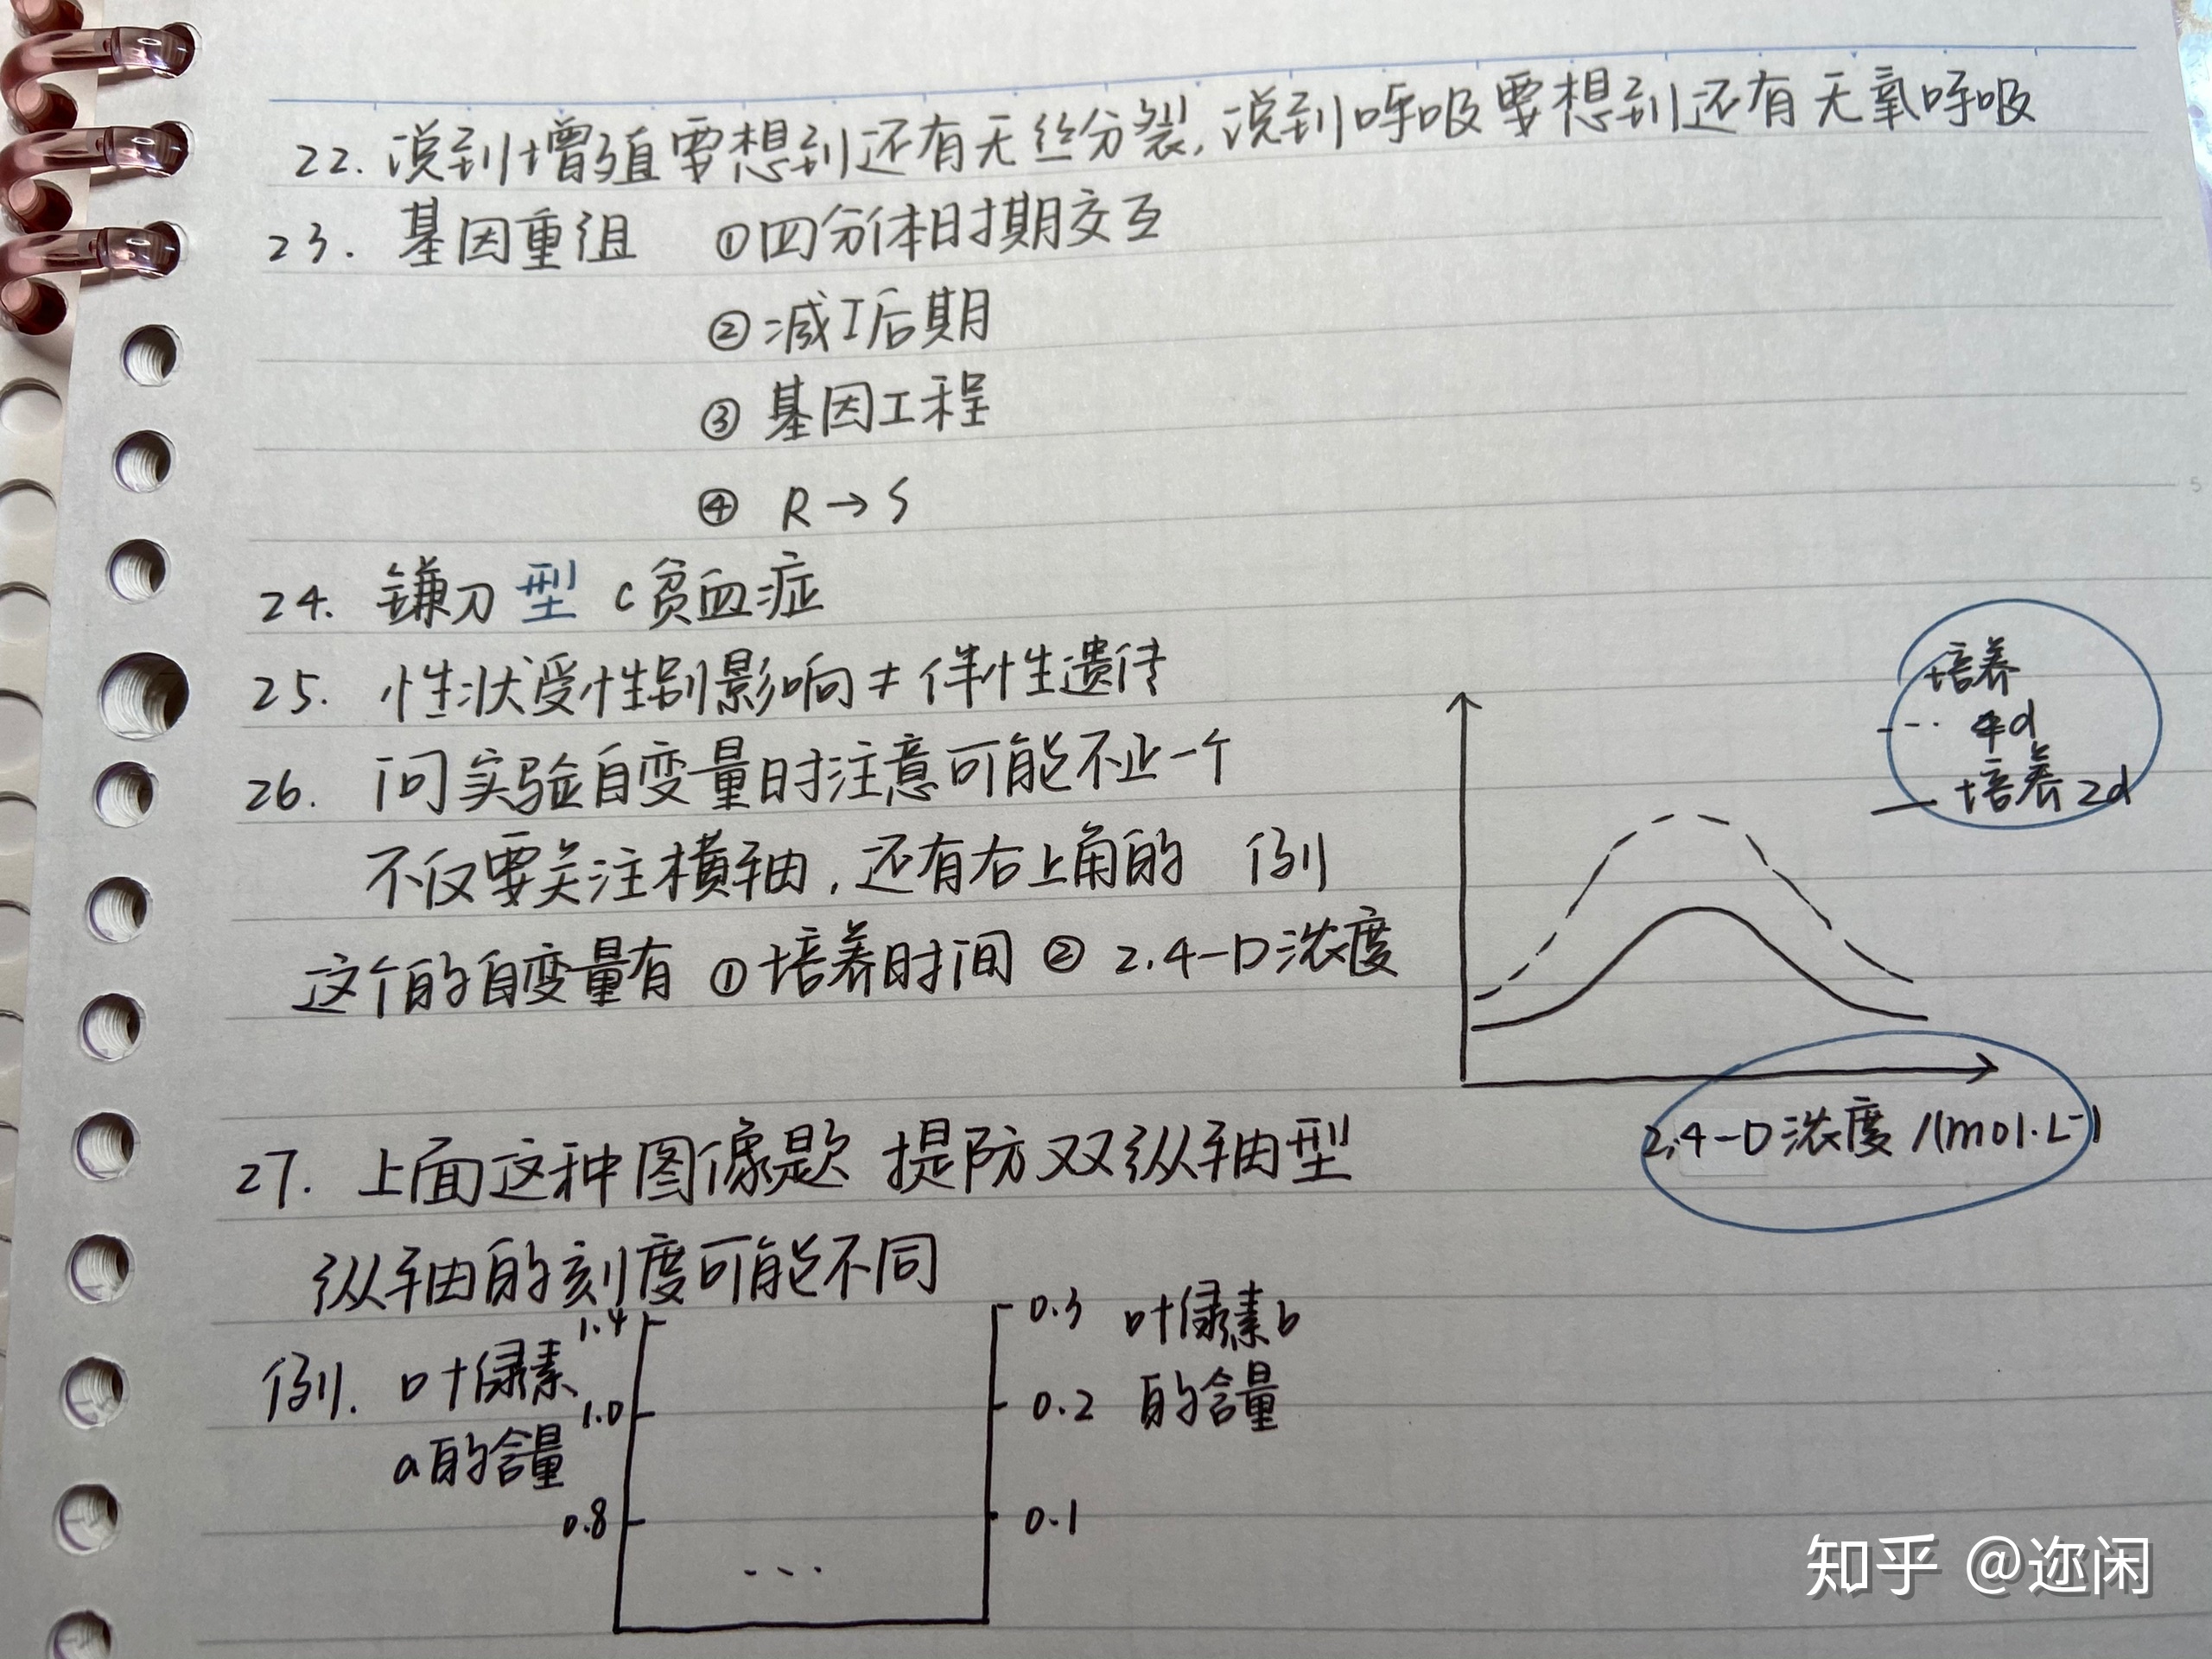 22. 说到增殖要想到还有无丝分裂,说到呼吸要想到还有无氧呼吸
23. 基因重组 ①四分体时期交互
②减I后期
③基因工程
④ R→S
24. 镰刀型c贫血症
25. 性状受性别影响≠伴性遗传
26. 问实验自变量时注意可能不止一个
不仅要关注横轴,还有右上角的 例
这个的自变量有 ①培养时间 ② 2,4-D浓度
培养
--- 4d
— 培养2d
2,4-D浓度/(mol·L-1
27. 上面这种图像题 提防双纵轴型
纵轴的刻度可能不同
例. 叶绿素 1.4 0.3 叶绿素b
a的含量 1.0 0.2 的含量
0.8 0.1
...
知乎 @迩闲
5